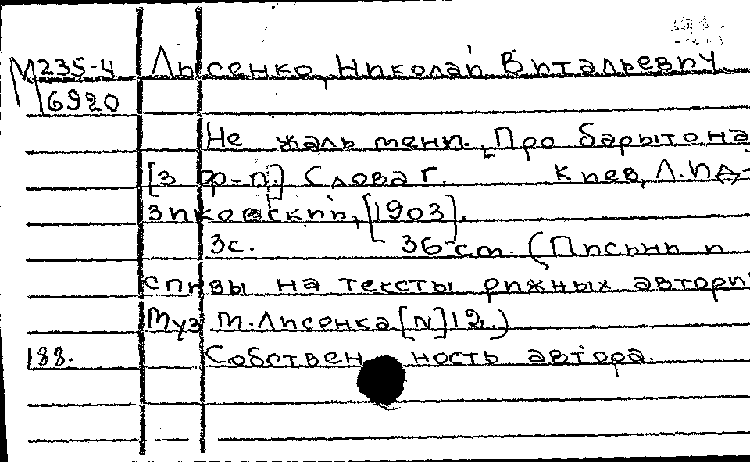 М235-4 Лисенко, Николай Витальевич
6920
Не жаль мени. [Про барытона
[з ф-п.] Слова Г. Киев, Л. Ид-
зиковский, [1903].
3с. 36 cm (Писни и
спивы на тексты рижных авторив
Муз М. Лисенка [N] 12.)
188. Собственность автора.